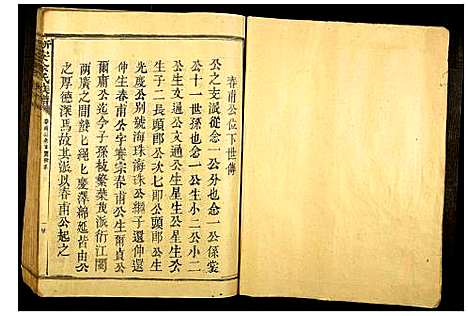 春甫公位下世傳
公之支派從念一公分也念一公係棠
公十一世孫也念一公生小二公小二
公生文通公文通公生星公星生
生子二長頭郎公次七郎公頭郎公生
光慶公別號海珠海珠公繼子還伸還
伸生春甫公字賓宗春甫公生爾貞公
爾肅公迄今子孫椒繁葉茂派衍江閩
兩廣之間蟄蟄繩繩慶澤綿延皆由公
之厚德深焉故其派以春甫公起之
余氏